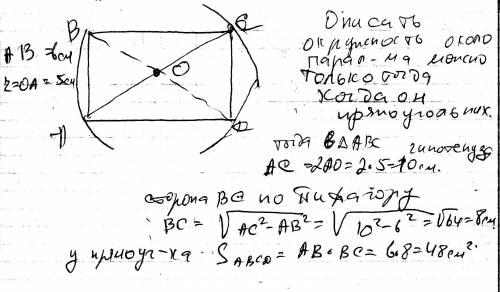 B
C
AB = 6см
r = OA = 5см
O
A
D
Описать
окружность около
парал-ма можно
только тогда
когда он
прямоугольник.
тогда в ΔABC гипотенуза
AC = 2AO = 2·5 = 10 см.
сторона BC по Пифагору
BC = √AC² - AB² = √10² - 6² = √64 = 8см
у прямоуг-ка S ABCD = AB · BC = 6·8 = 48см².